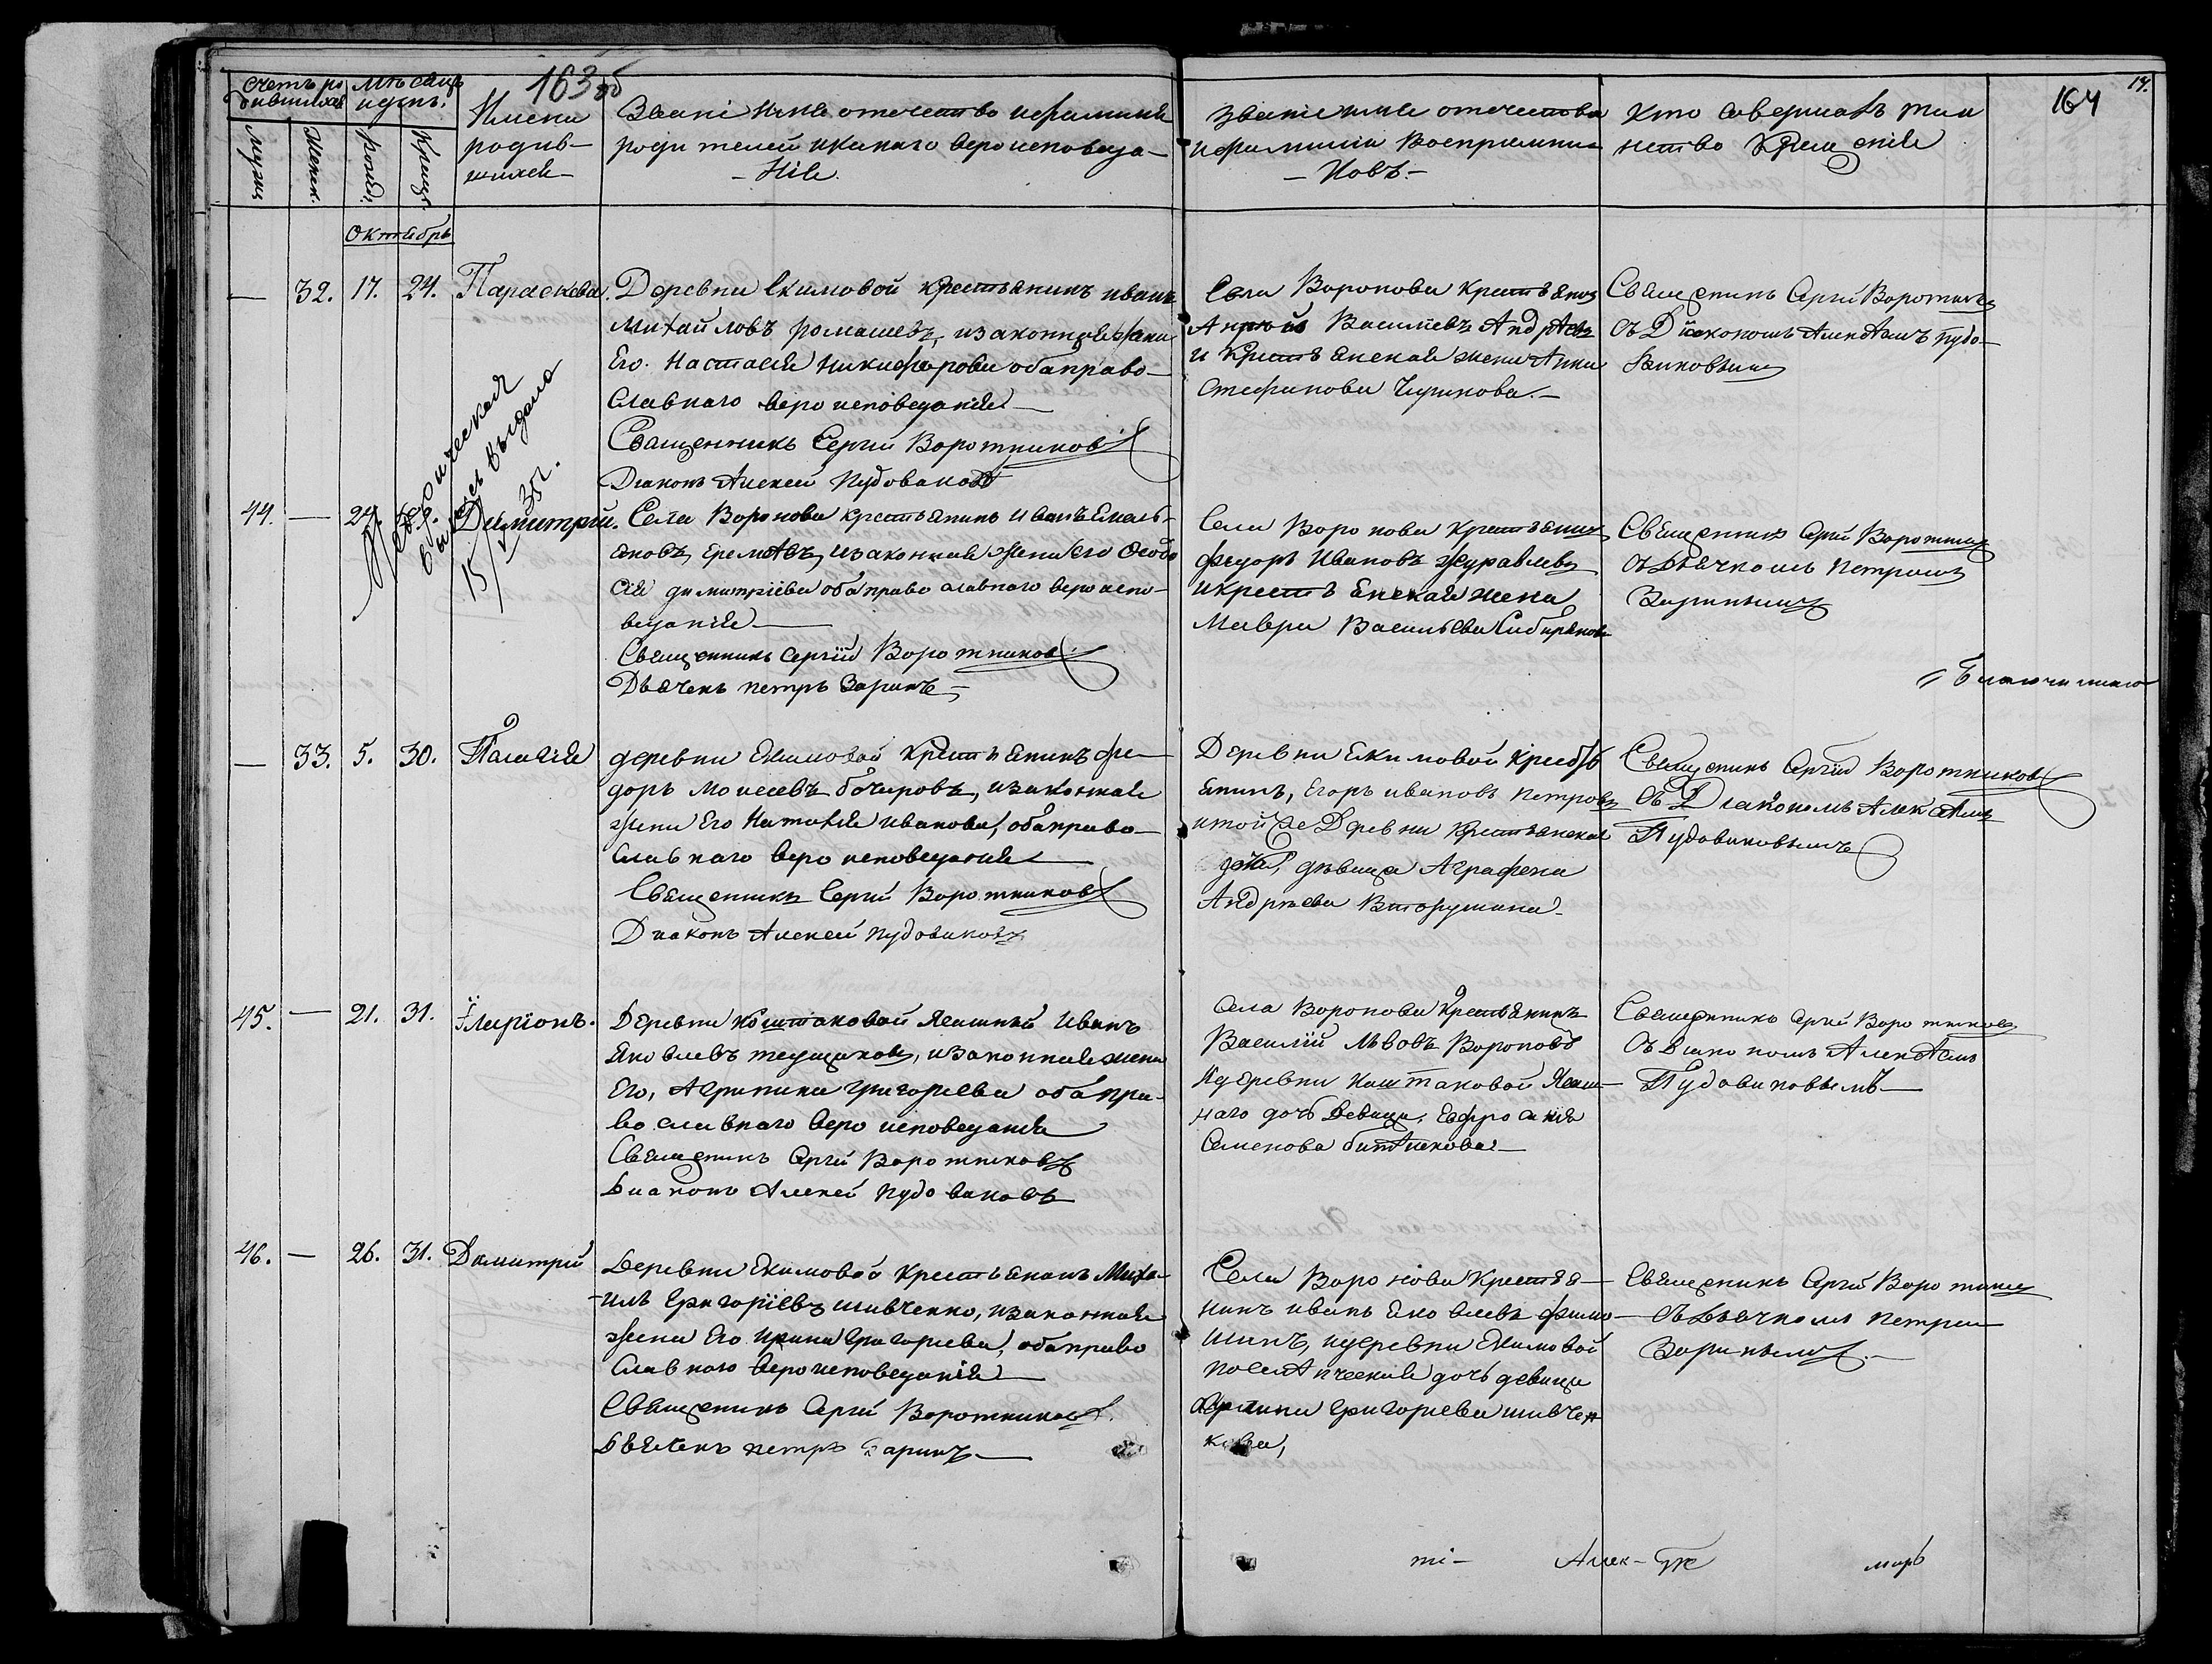 163 об
Счетъ ро
дившихся
Мѣсяцъ
и день.
Мужз
Женск.
Рожд.
Крещ.
Имена
родив-
шихся
Званіе имя отечество и фамилия
родителей и какого вероисповеда-
-ния.
Звание имя отечество
и фамилия Восприемни-
-ковъ-
Кто совершалъ таи
нство Крещения
164
14.
Октябрь
— 32. 17. 24. Параскева.
Деревни Екимовой крестьянинъ иванъ
Михайловъ ромашевъ, и законная жена
Его. Настасия Никифорова оба право-
славнаго вероисповедания—
Священникъ Сергий Воротниковъ
Диаконъ Алексей Пудовиковъ
Села Воронова крестьянинъ
Василиевъ Андрѣевъ
и крестьянская жена Анна
Стефанова Чирикова.—
Священикъ Сергий Воротник
съ Дїакономъ Алексѣемъ пудо-
виковымъ
Метрическая
выпись выдана
15/V 35г.
44. — 24. Димитрий.
Села Воронова крестьянинъ Иванъ Емель-
яновъ, еремѣевъ, и законная жена его Феодо
сия димитриева оба православнаго вероиспо-
ведания—
Священникъ Сергий Воротниковъ
Дьячекъ петръ Заринъ—
Села Воронова Крестьянинъ
Федоръ Ивановъ журавлевъ
и крестьянская жена
Мавра Васильева Сибирякова
Священикъ Сергий Воротник
съ Дьячкомъ Петромъ
Заринымъ
— 33. 5. 30. Палагия
деревни Екимовой крестьянинъ фе-
доръ Моисеевъ бочаровъ, и законная
жена Его Наталия иванова, оба право-
славнаго вероисповедания—
Священикъ Сергий Воротниковъ
Диаконъ Алексей пудовиковъ
Деревни Екимовой Крестьь
янинъ, Егоръ ивановъ петровъ
и той же Деревни крестьянская
дочь, дѣвица Аграфена
Андреева Вторушина—
Священикъ Сергий Воротниковъ
съ Диакономъ Алексѣемъ
Пудовиковымъ
45. — 21. 31. Иларионъ.
Деревни Коштаковой Ясашный Иванъ
Яковлевъ тецщаковъ, и законная жена
Его, Агрипина григорьева оба пра-
вославнаго вероисповедания
Священикъ Сергий Воротниковъ
Диаконъ Алексей Пудовиковъ
Села Воронова Крестьянинъ
Василий Львовъ Вороновъ
и деревни Коштаковой Ясаш-
наго дочь Девица, Евфросиния
Семенова битѣнкова—
Священникъ Сергий Воротниковъ
съ Диакономъ Алексѣемъ
Пудовиковымъ—
46. — 26. 31. Димитрий
Деревни Екимовой Крестьянинъ Миха-
илъ Григориевъ шивченко, и законная
жена Его Ирина Григорьева, оба право
славнаго вероисповедания—
Священикъ Сергий Воротниковъ.
Дьячекъ петръ Заринъ—
Села Воронова Крестья—
нинъ иванъ Яковлевъ фимо-
шинъ, и деревни Екимовой
дочь девица
Григорьева шивчен
кова,
Священикъ Сергий Воротник
съ Дьячкомъ Петромъ
Заринымъ.—
Благочиннаго
ті— Алек- марь